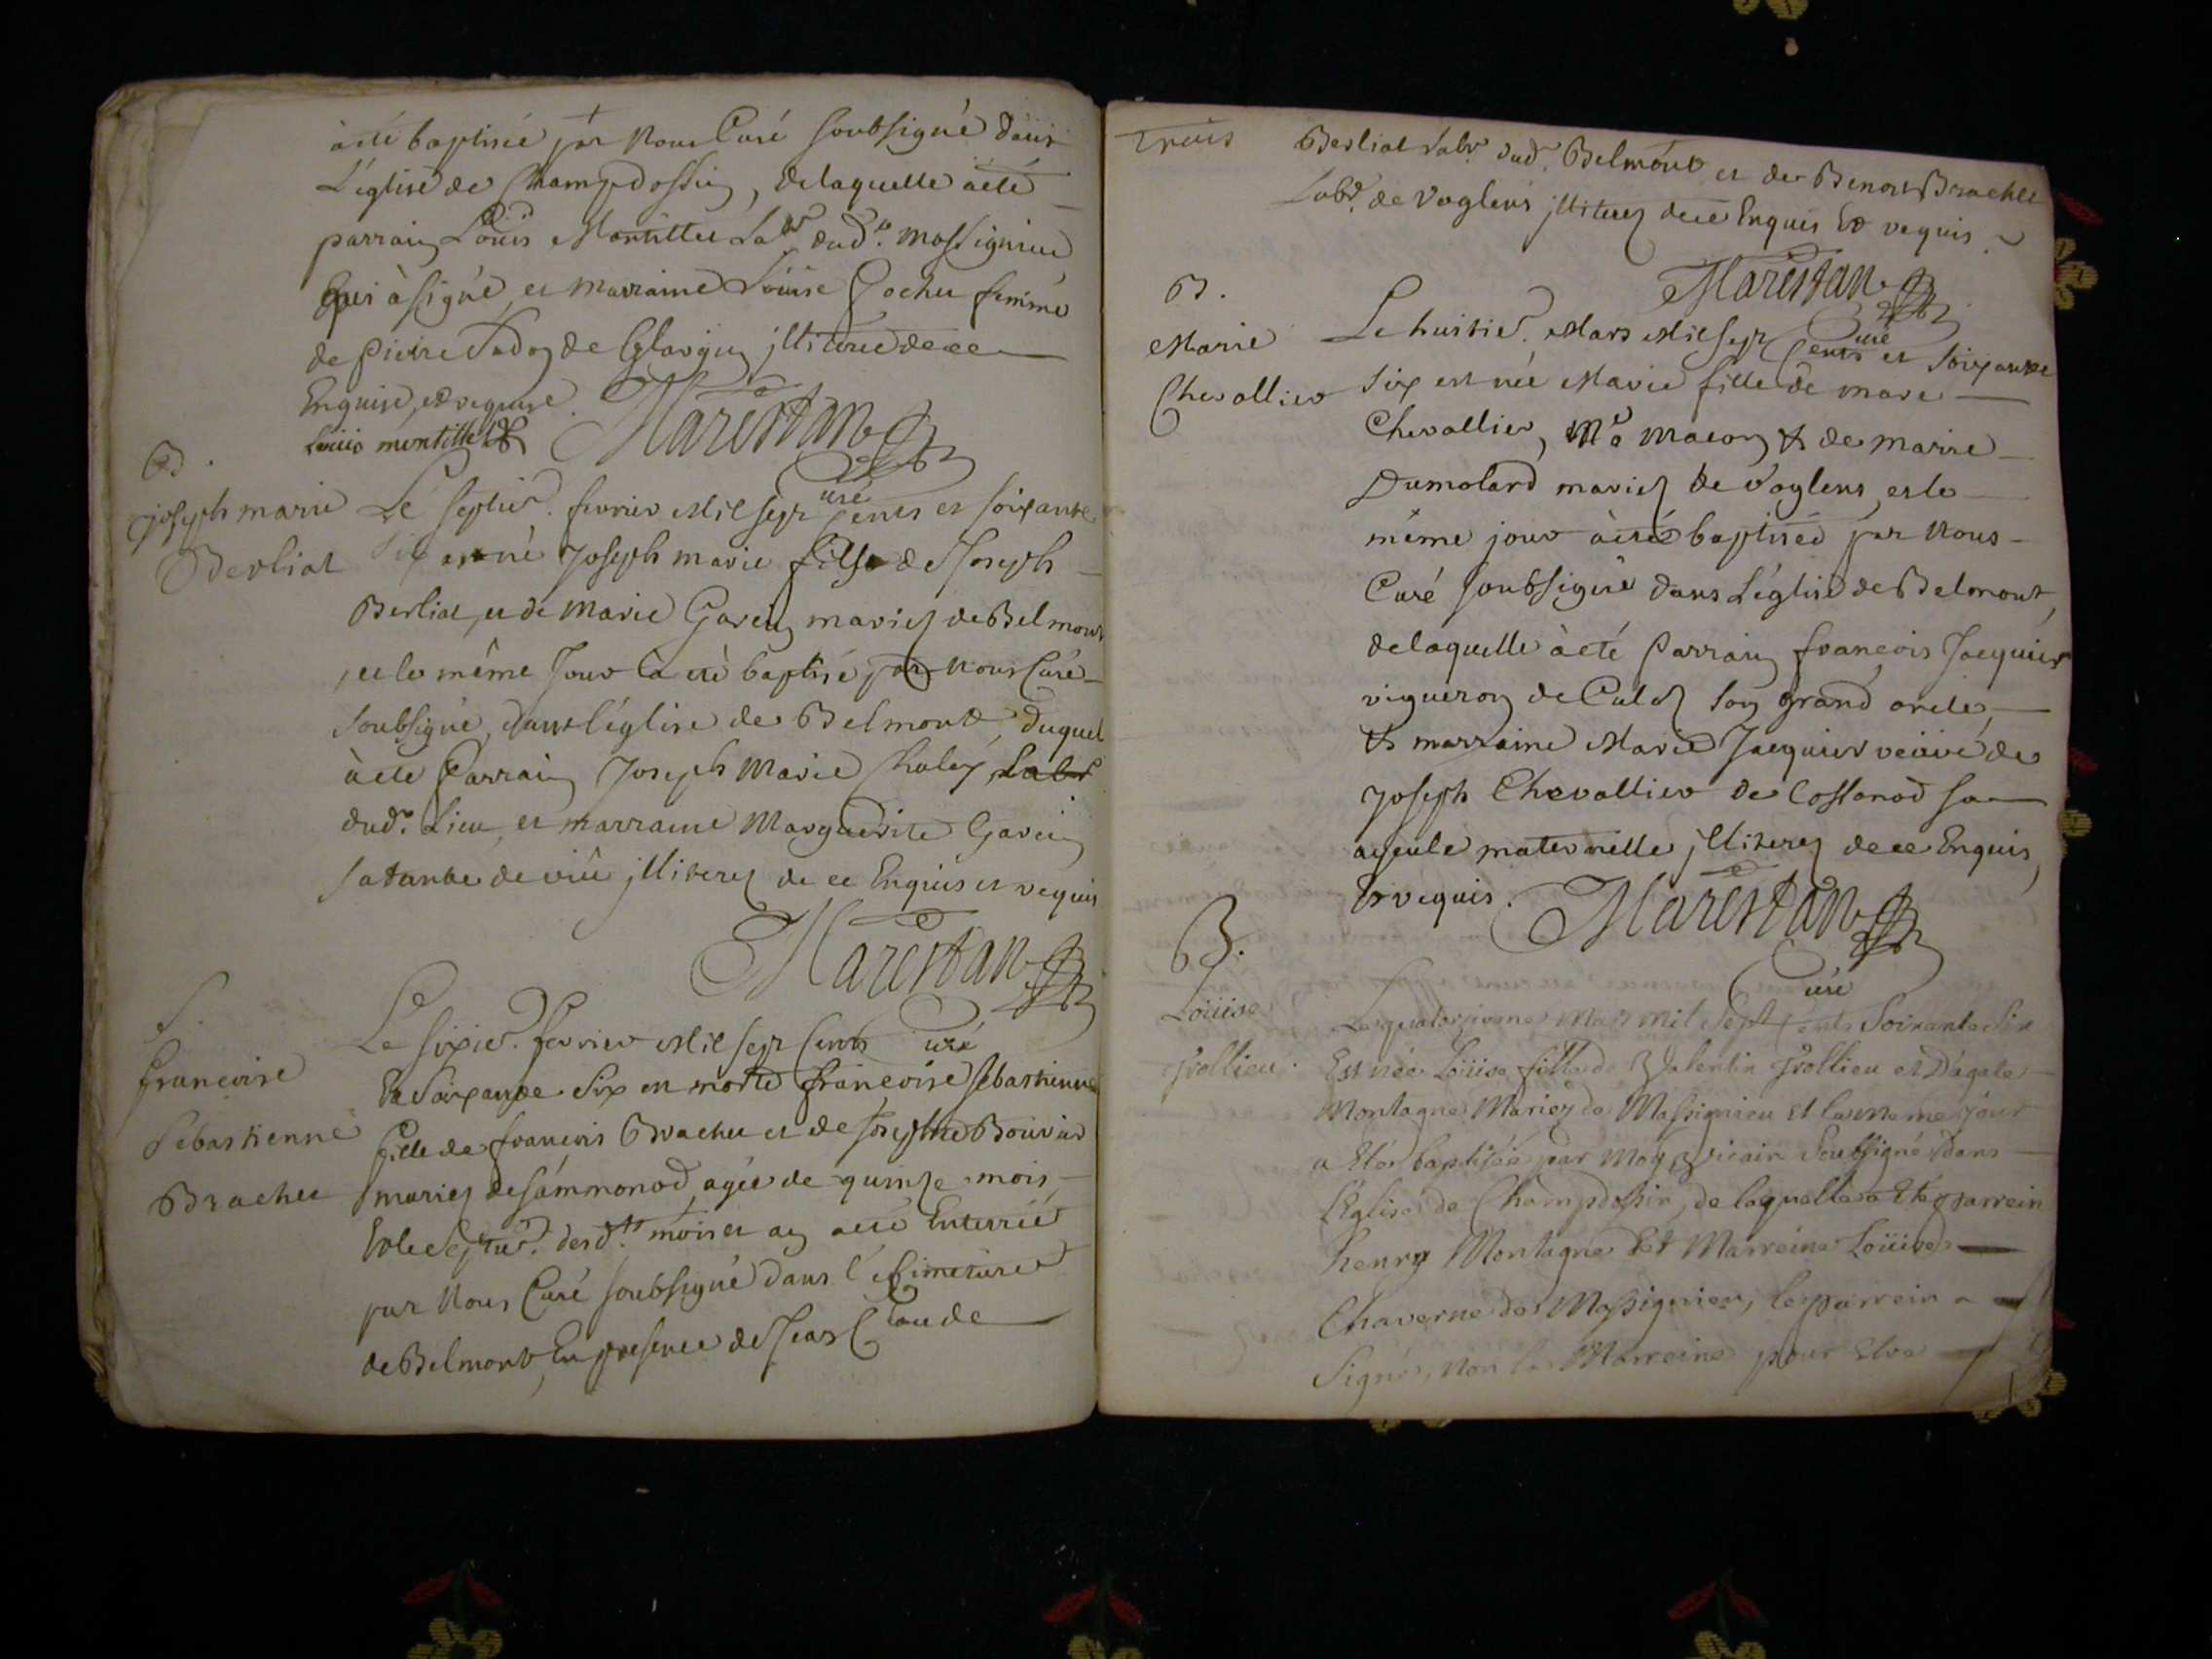 à été baptisée par Nous Curé soubsigné dans
L'église de Champdossin, delaquelle à été
parrain Louis Montillet Labr. dud. Massignieu
qui à signé, et marraine Louise Gochet femme
de pierre de illiterée de ce
Enquise, et requise.
Louis montillet Marestan
Curé
B.
joseph marie
Berliat
Le septier. fevrier Mil sept Cents et soixante
Six est né Joseph marie fils de Joseph
Berliat, et de Marie Garin mariez de Belmont
, et le même Jour à été baptisé par Nous Curé
soubsigné, dans l'église de Belmont, duquel
à été Parrain Joseph Marie Chaley Labr
dud. Lieu, et marraine Marguerite Garin
sa tante de illiterez de ce Enquis et requis
Marestan
Curé
S.
francoise
Sebastienne
Brachet
Le sixier. fevrier Mil sept Cents
Et Soixante Six est morte francoise sebastienne
fille de francois Brachet et de Josephte Bouvard
mariez de sammonod, agée de quinze mois,
Et le septier. desd.ts mois et an à été Enterrée
par Nous Curé soubsigné dans le cimetiere
de Belmont, En presence de Jean Claude
Trois
Berliat Labr. dud. Belmont et de Benoit Brachet
Labr. de Voglens illiterez de ce Enquis Et requis
Marestan
Curé
B.
Marie
Chevallier
Le huitier. Mars Mil sept Cents et soixante
Six est née Marie fille de Marc
Chevallier, Me Macon & de Marie
Dumolard mariez de Voglens, et le
même jour à été baptisée par Nous
Curé soubsigné dans L'église de Belmont,
delaquelle à été Parrain francois Jacquier
vigneron de Culoz son grand oncle,
& marraine Marie Jacquier veuve de
Joseph Chevallier de Cossonod sa
ayeule maternelle illiterez de ce Enquis,
Et requis. Marestan
Curé
B.
Loüise
Frollieu.
Le quatorzieme Mars mil Sept Cents Soixante Six
Est née Loüise fille de Valentin Frollieu et D'agate
Montagne Mariez de Massignieu Et le meme jour
a Eté baptisée par Moy Vicair Soubsigné dans
L'Eglise de Champdossin, de laquelle a Eté parrein
henry Montagne Et Marreine Loüise
Chaverne de Massignieu, le parrein a
Signé, Non la Marreine pour Etre